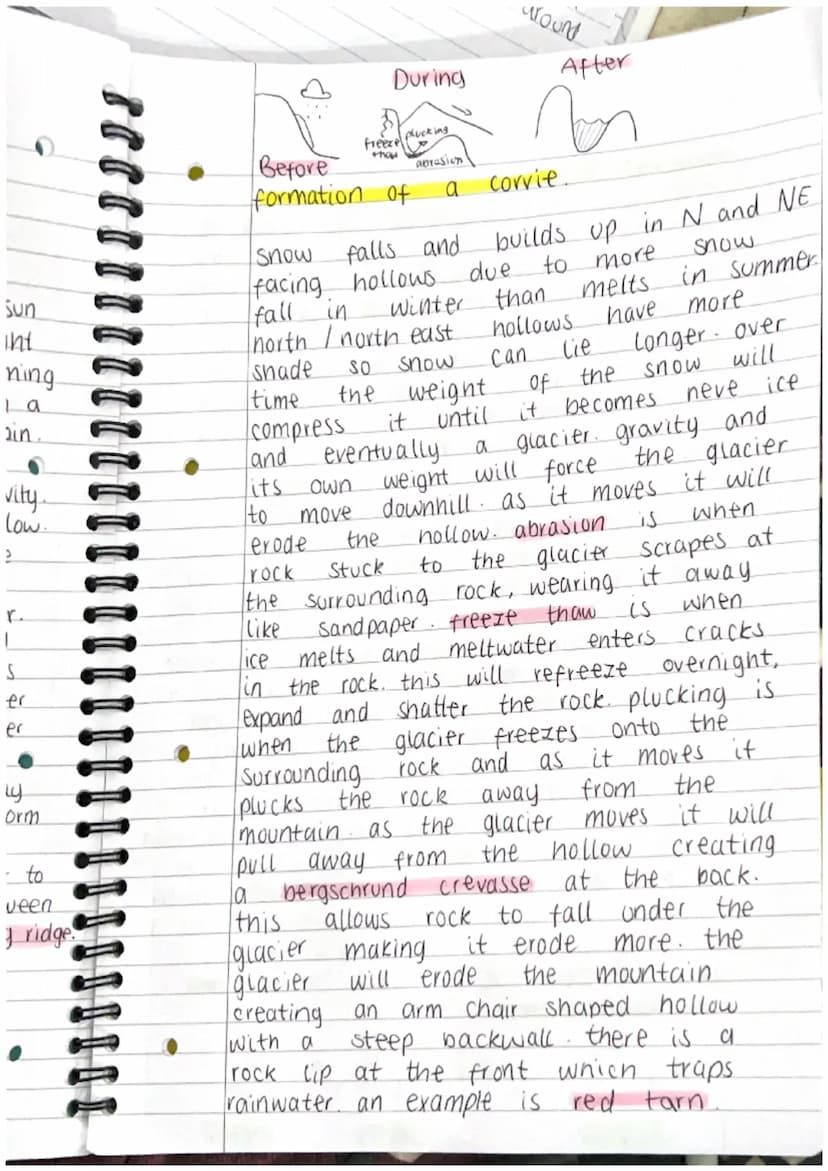 around
During
After
freeze
thaw
plucking
abrasion
Before
formation of a corrie.
snow falls and builds up in N and NE
facing hollows due to more snow
fall in winter than melts in summer.
north / north east hollows have more
shade so snow can lie longer. over
time the weight of the snow will
compress it until it becomes neve ice
and eventually a glacier. gravity and
its own weight will force the glacier
to move downhill. as it moves it will
erode the hollow. abrasion is when
rock stuck to the glacier scrapes at
the surrounding rock, wearing it away
like sandpaper. freeze thaw is when
ice melts and meltwater enters cracks
in the rock. this will refreeze overnight,
expand and shatter the rock. plucking is
when the glacier freezes onto the
surrounding rock and as it moves it
plucks the rock away from the
mountain. as the glacier moves it will
pull away from the hollow creating
a bergschrund crevasse at the back.
this allows rock to fall under the
glacier making it erode more. the
glacier will erode the mountain
creating an arm chair shaped hollow
with a steep backwall. there is a
rock lip at the front which traps
rainwater. an example is red tarn.
sun
ning
a
vity.
low.
r.
s
er
er
orm
to
ween
ridge.